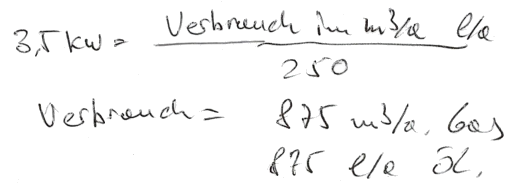 3,5 kW = Verbrauch in m³/a l/a
250
Verbrauch = 875 m³/a, Gas
875 l/a Öl,